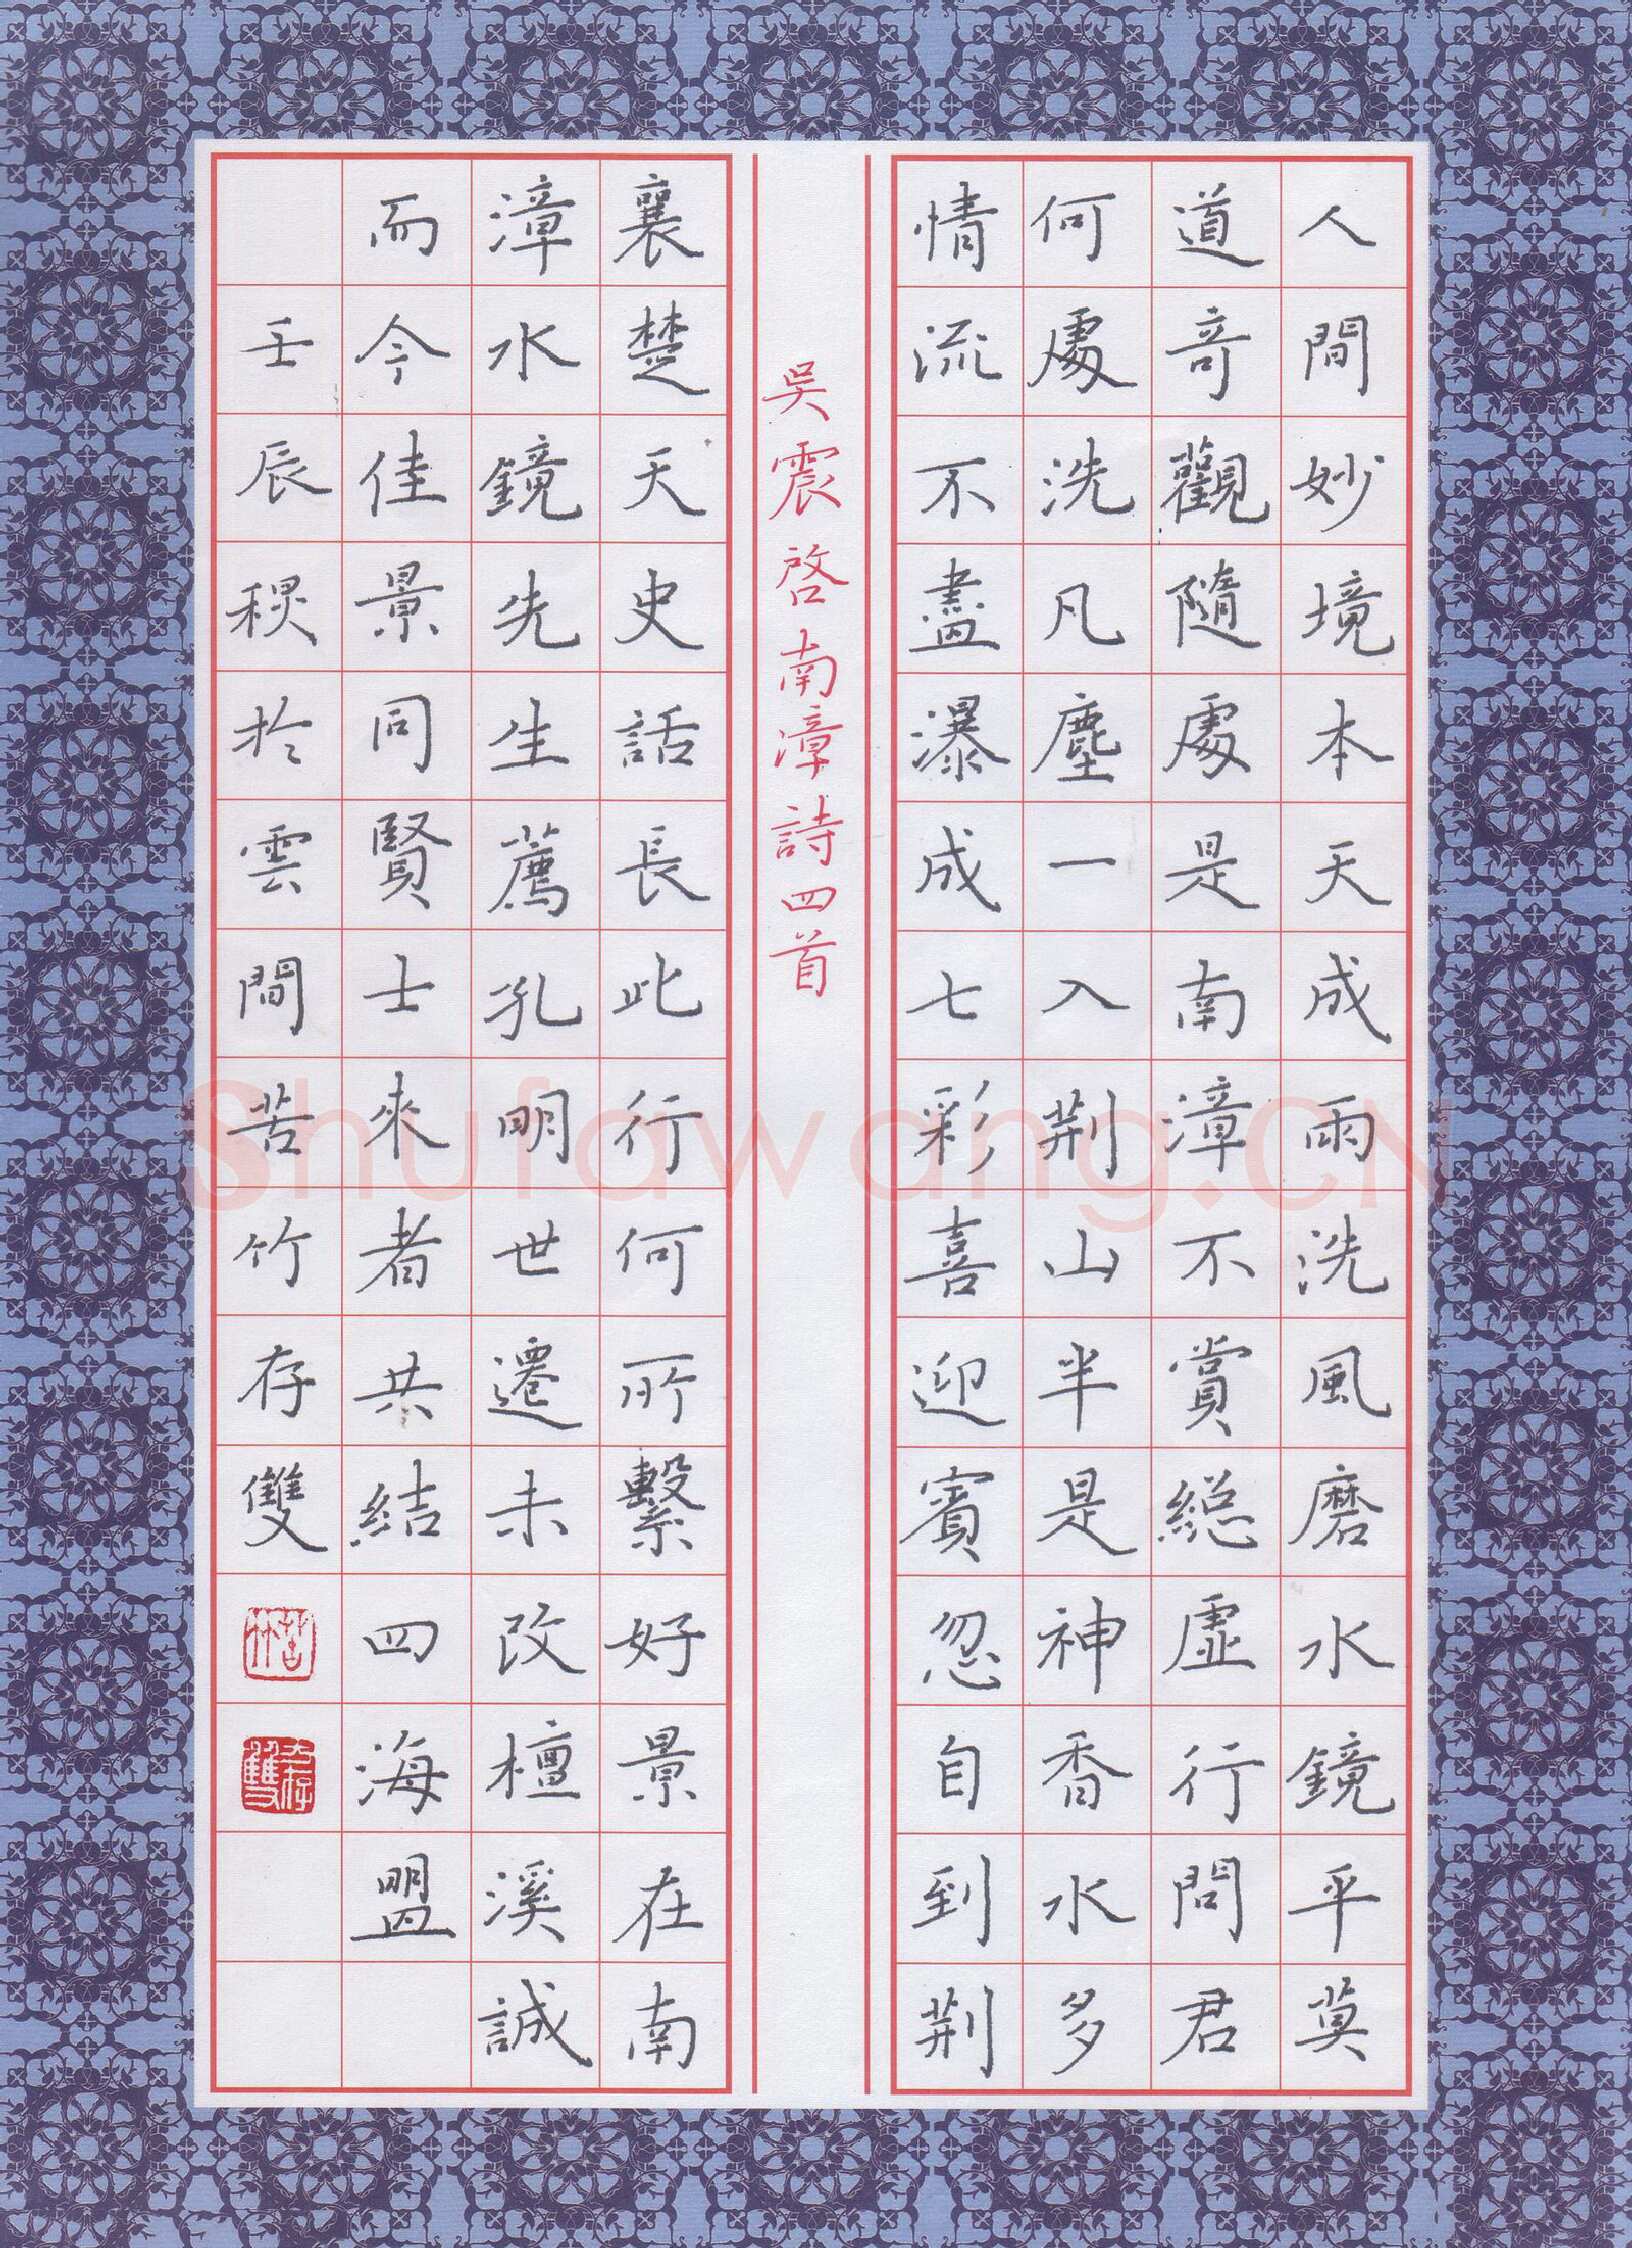 人間妙境本天成雨洗風磨水鏡平莫
道奇觀隨處是南漳不賞總虛行問君
何處洗凡塵一入荆山半是神香水多
情流不盡瀑成七彩喜迎賓忽自到荆
吳震啓南漳詩四首
襄楚天史話長此行何所繫好景在南
漳水鏡先生薦孔明世遷未改檀溪誠
而今佳景同賢士來者共結四海盟
壬辰秋於雲間苦竹存雙
苦竹
存雙
Shufawang.CN